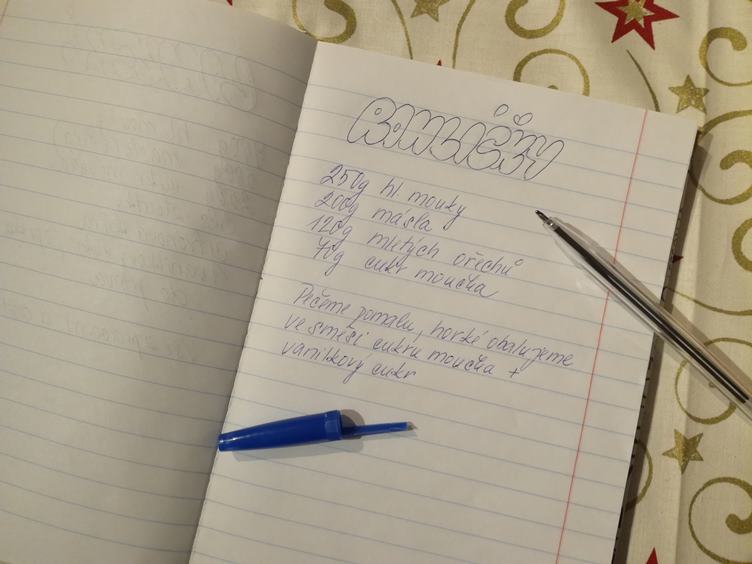 ROHLÍČKY
250g hl. mouky
200g másla
120g mletých ořechů
70g cukr moučka
Pečeme pomalu, horké obalujeme
ve směsi cukru moučka +
vanilkový cukr